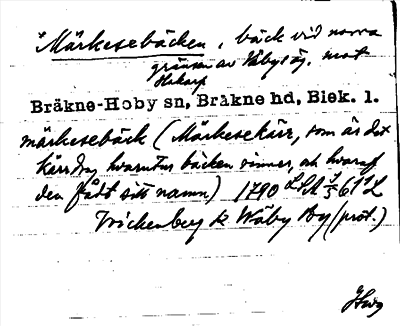 "Märkesebäcken, bäck vid norra
gränsen av Väby äg. mot
Hakarp
Bräkne-Hoby sn, Bräkne hd, Blek. l.
märkesebäck (Märkesekärr, som är det
kärr dry hvarutur bäcken rinner, och hvaraf
den fådt sitt namn) 1790 LSA
Wrickenberg k Wäby by (prot.)